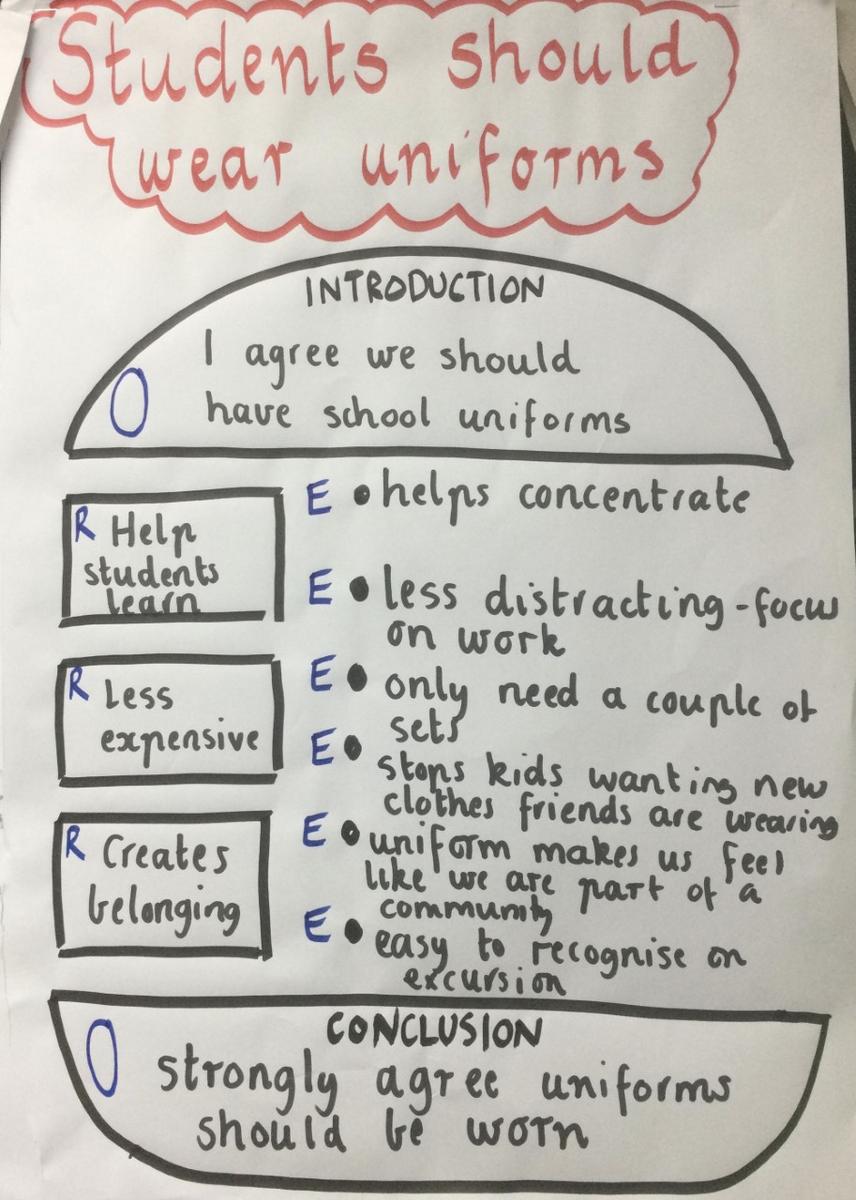 Students should
wear uniforms
INTRODUCTION
O I agree we should
have school uniforms
R Help
students
learn
E • helps concentrate
E • less distracting - focus
on work
R Less
expensive
E • only need a couple of
sets
E • stops kids wanting new
clothes friends are wearing
R Creates
belonging
E • uniform makes us feel
like we are part of a
community
E • easy to recognise on
excursion
CONCLUSION
O strongly agree uniforms
should be worn